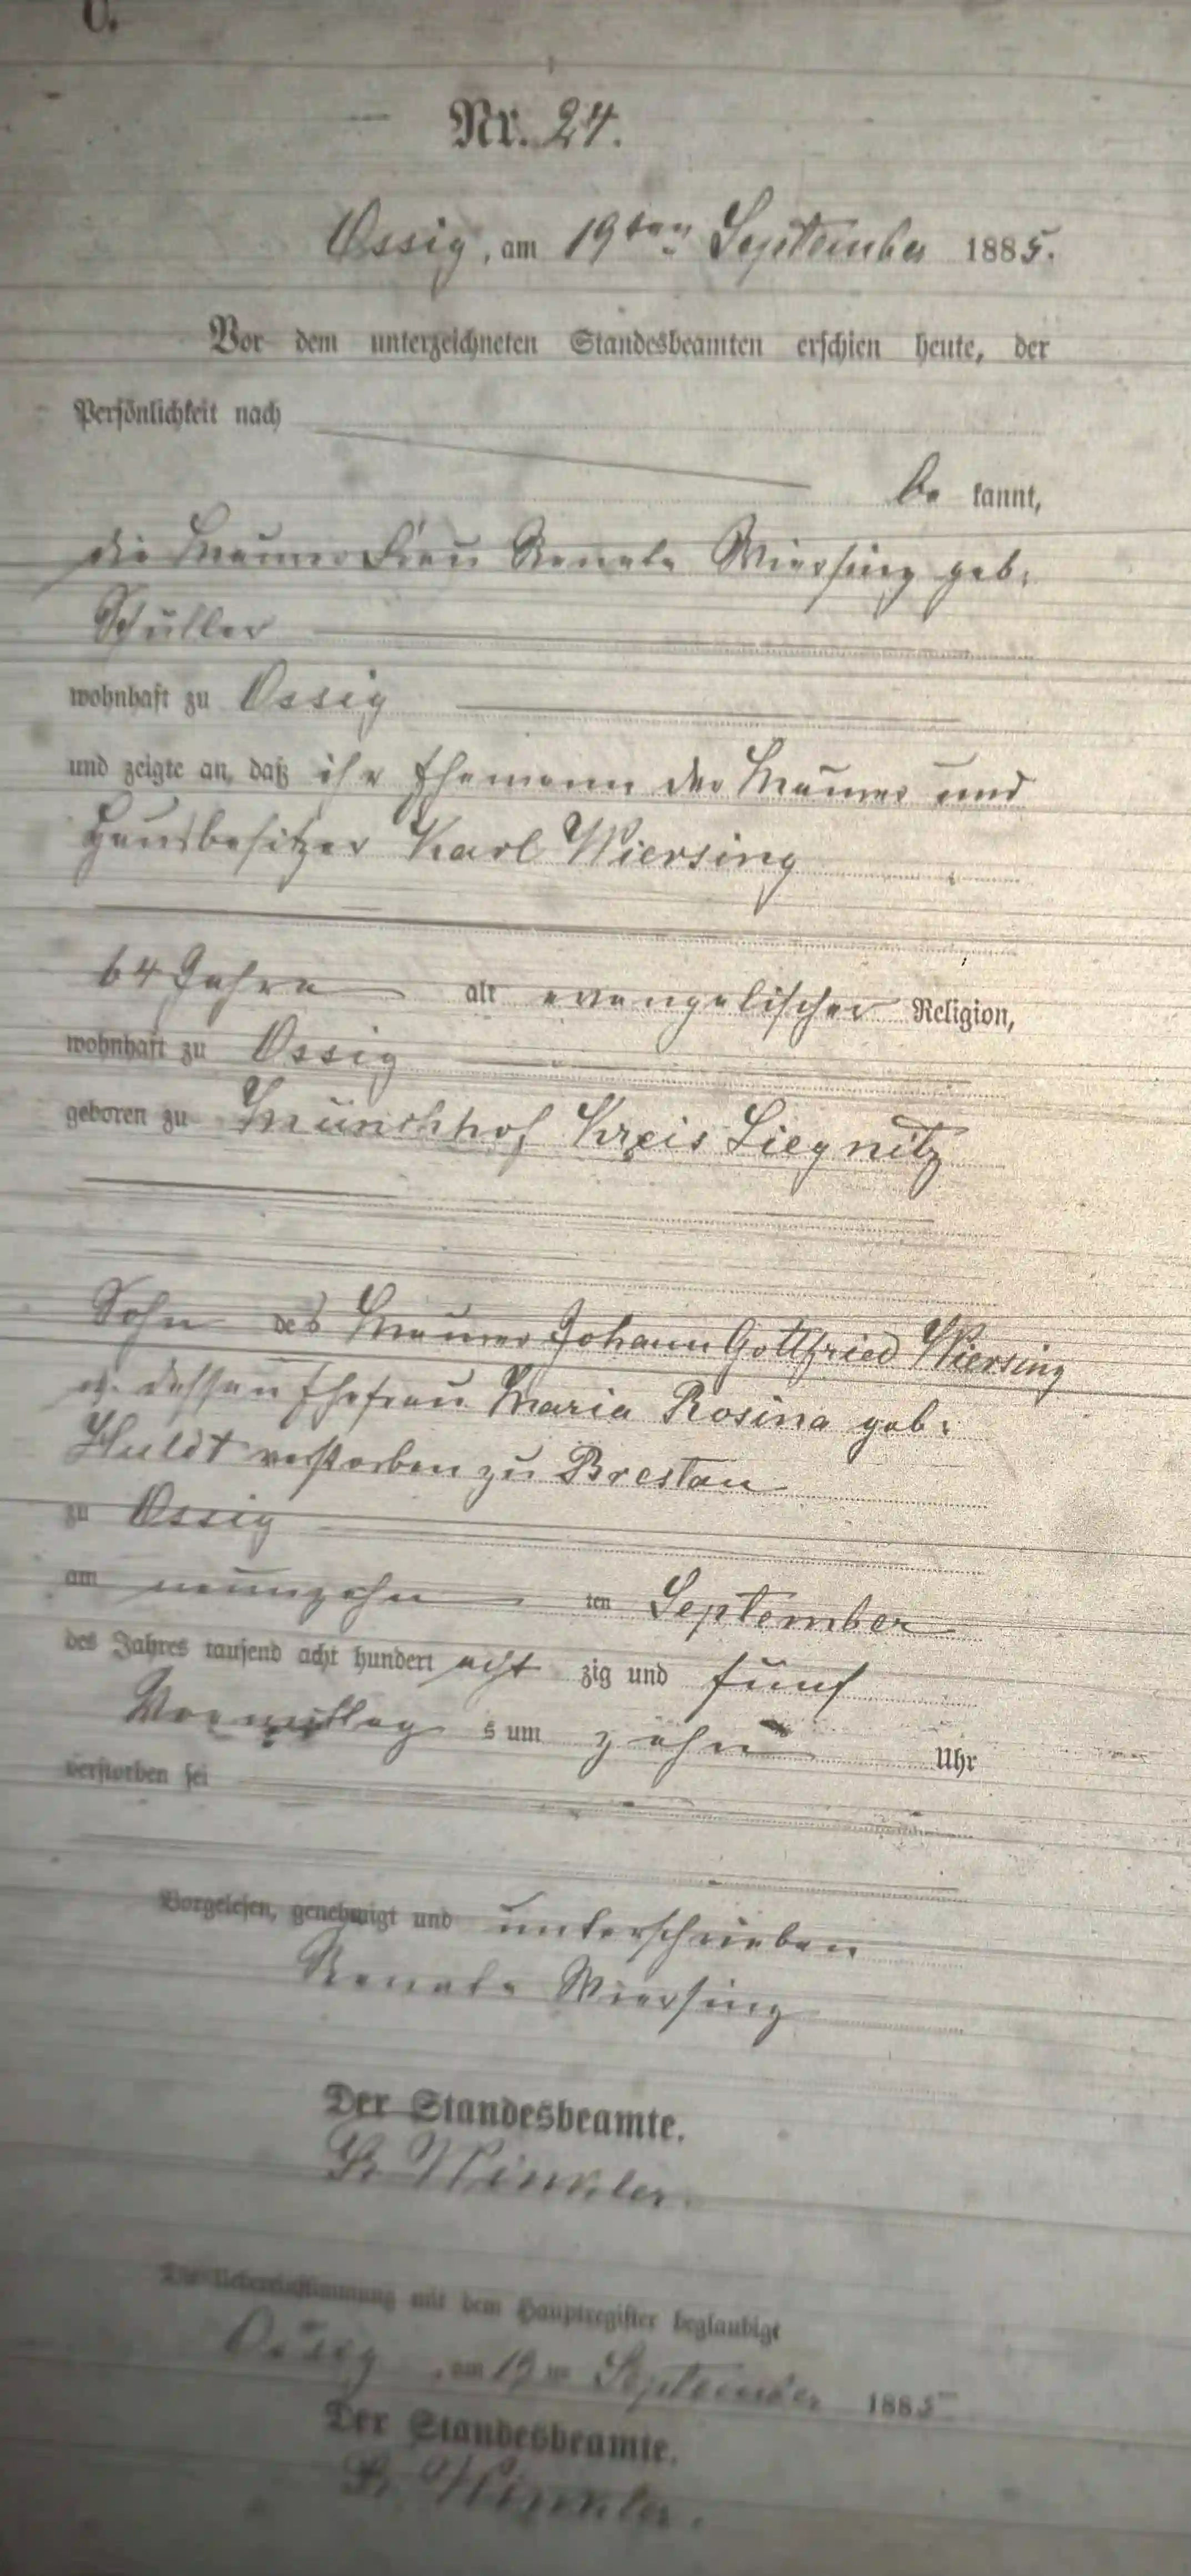 C.
Nr. 24.
Ossig, am 19ten September 1885.
Vor dem unterzeichneten Standesbeamten erschien heute, der
Persönlichkeit nach
be kannt,
die Maurer Frau Renate Wiersing geb.
Schüller
wohnhaft zu Ossig
und zeigte an, daß ihr Ehemann der Maurer und
Hausbesitzer Karl Wiersing
64 Jahre alt evangelischer Religion,
wohnhaft zu Ossig
geboren zu Münchhof Kreis Liegnitz
Sohn des Maurer Johann Gottfried Wiersing
u. dessen Ehefrau Maria Rosina geb.
Huldt verstorben zu Breslau
zu Ossig
am neunzehn ten September
des Jahres tausend acht hundert acht zig und fünf
Vormittag s um zehn Uhr
verstorben sei
Vorgelesen, genehmigt und unterschrieben
Renate Wiersing
Der Standesbeamte.
Winkler.
Die Uebereinstimmung mit dem Hauptregister beglaubigt
Ossig, am 19ten September 1885
Der Standesbeamte.
Winkler.